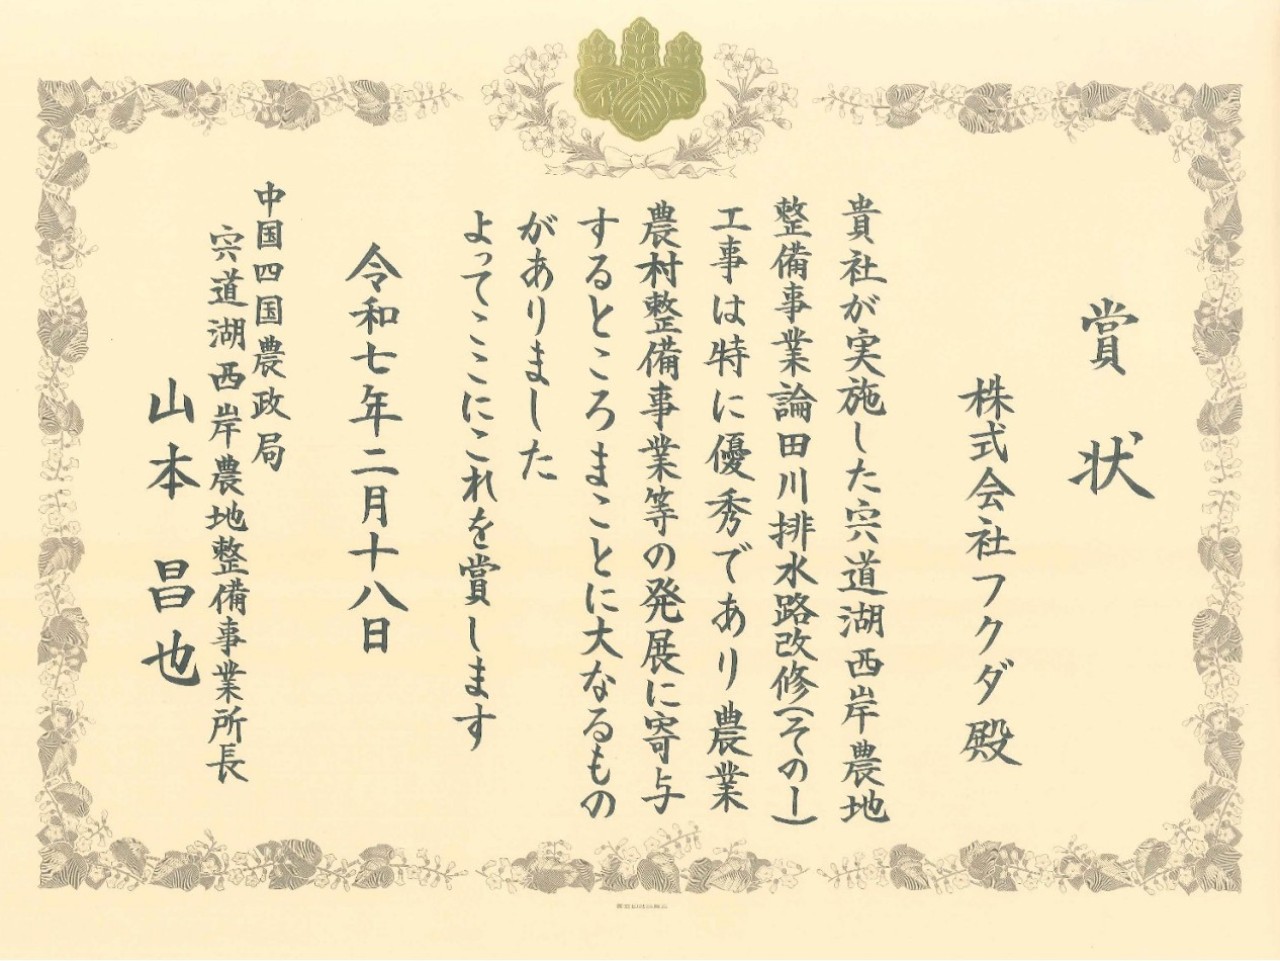 賞状
株式会社フクダ殿
貴社が実施した宍道湖西岸農地
整備事業論田川排水路改修(その一)
工事は特に優秀であり農業
農村整備事業等の発展に寄与
するところまことに大なるもの
がありました
よってここにこれを賞します
令和七年二月十八日
中国四国農政局
宍道湖西岸農地整備事業所長
山本昌也